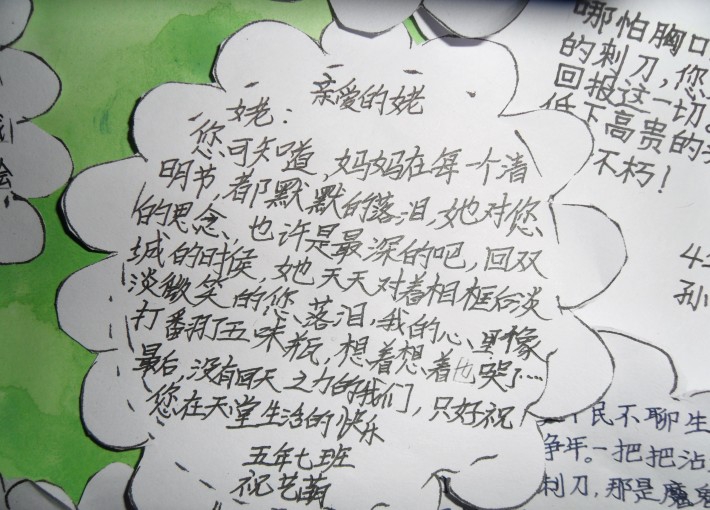 亲爱的姥
姥：
您可知道，妈妈在每一个清
明节，都默默的落泪，她对您
的思念，也许是最深的吧，回双
城的时候，她天天对着相框后淡
淡微笑的您落泪，我的心里像
打翻了五味瓶，想着想着也哭了…
最后，没有回天之力的我们，只好祝
您在天堂生活的快乐
五年七班
祝艺萌
哪怕胸口
的刺刀，您
回报这一切。
低下高贵的
不朽！
孙
民不聊生
争年。一把把沾
刺刀，那是魔鬼
绘